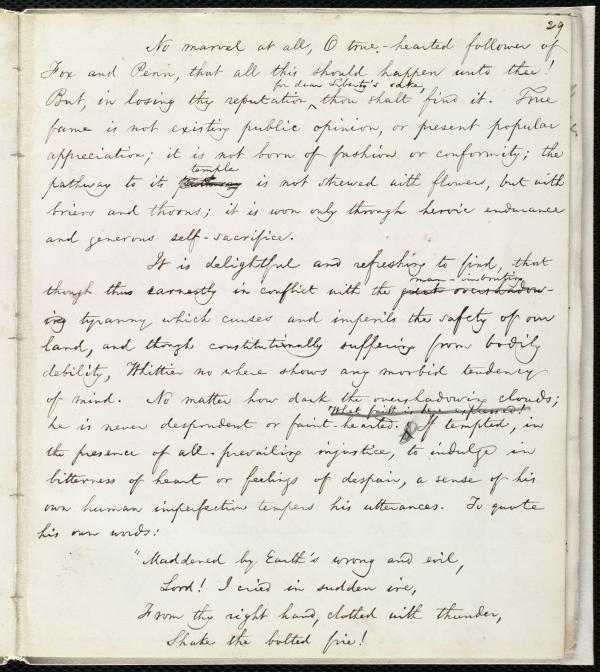 29
No marvel at all, O true-hearted follower of
Fox and Penn, that all this should happen unto thee!
for dear Liberty's sake,
But, in losing thy reputation, ^ thou shalt find it. True
fame is not existing public opinion, or present popular
appreciation; it is not born of fashion or conformity; the
temple
pathway to its is not strewed with flowers, but with
briers and thorns; it is won only through heroic endurance
and generous self-sacrifice.
It is delightful and refreshing to find, that
man-imbruting
though thus earnestly in conflict with the great overshadow-
ing tyranny which curses and imperils the safety of our
land, and though constitutionally suffering from bodily
debility, Whittier no where shows any morbid tendency
of mind. No matter how dark the overshadowing clouds;
What faith is here expressed!
he is never despondent or faint-hearted. If tempted, in
the presence of all-prevailing injustice, to indulge in
bitterness of heart or feelings of despair, a sense of his
own human imperfection tempers his utterances. To quote
his own words:
"Maddened by Earth's wrong and evil,
Lord! I cried in sudden ire,
From thy right hand, clothed with thunder,
Shake the bolted fire!